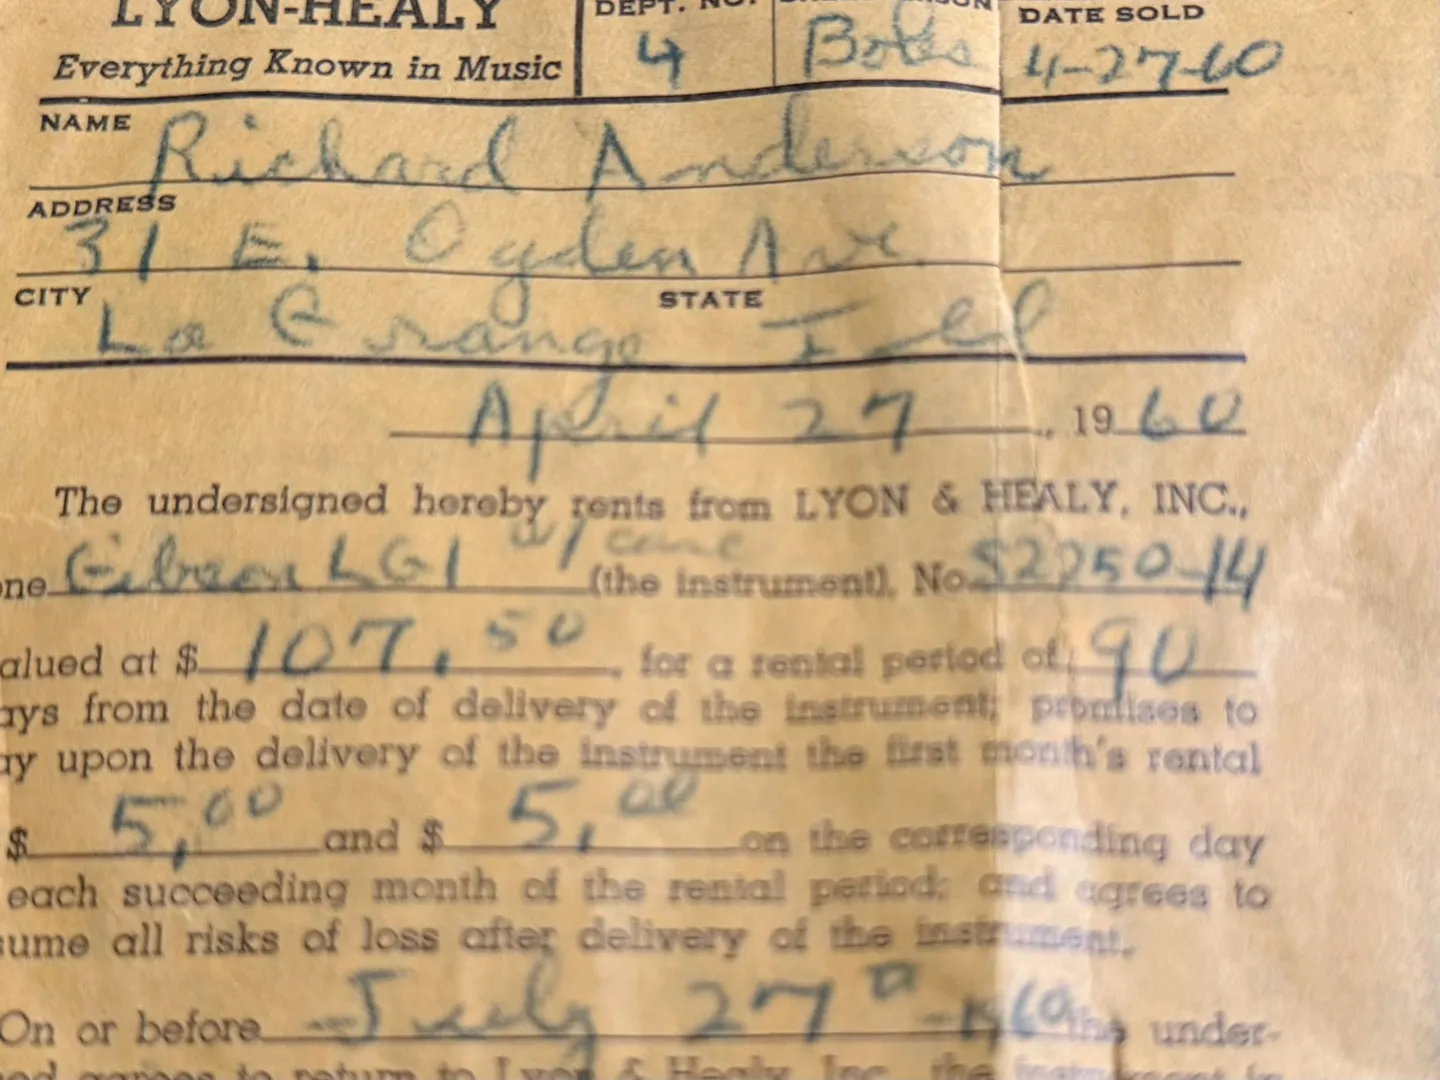 LYON-HEALY
Everything Known in Music
DEPT. NO.
4
DATE SOLD
4-27-60
NAME
Richard Anderson
ADDRESS
31 E. Ogden Ave
CITY
La Grange
STATE
Ill
April 27, 19 60
The undersigned hereby rents from LYON & HEALY, INC.,
w/ case
one Gibson LG1 (the instrument), No. S2250-14
alued at $ 107.50, for a rental period of 90
ays from the date of delivery of the instrument; promises to
ay upon the delivery of the instrument the first month's rental
$ 5.00 and $ 5.00 on the corresponding day
each succeeding month of the rental period; and agrees to
sume all risks of loss after delivery of the instrument.
On or before July 27 1960 the under-
ed agrees to return to Lyon & Healy, Inc. the instrument in